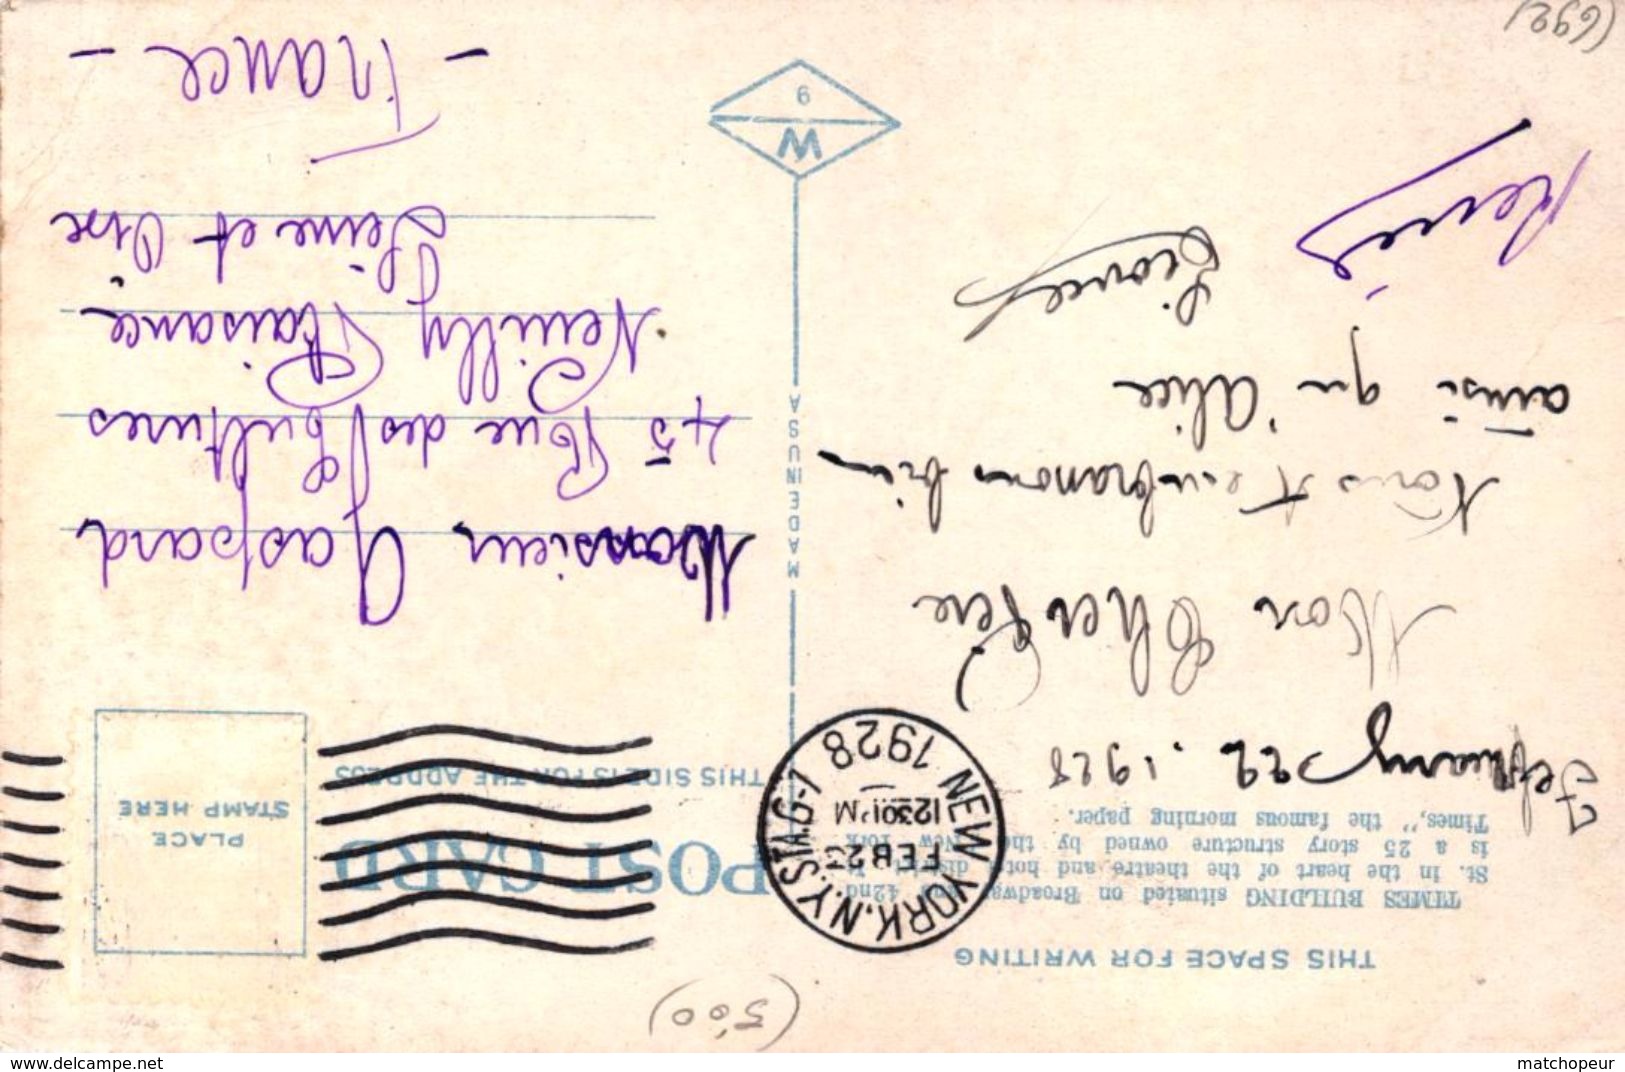 THIS SPACE FOR WRITING
TIMES BUILDING situated on Broadway and 42nd
St. in the heart of the theatre and hotel district. It
is a 25 story structure owned by the "New York
Times," the famous morning paper.
February 22. 1928
Mon Cher Père
Nous t'embrassons bien
ainsi qu'Alice
Renée
NEW YORK, N.Y. STA. G-1
FEB 23
1230 PM
1928
MADE IN U S A
W
9
(500)
POST CARD
THIS SIDE IS FOR THE ADDRESS
PLACE
STAMP HERE
Monsieur Gaspard
45 Rue des Cultures
Neuilly Plaisance
Seine et Oise
- France -
(692)
www.delcampe.net
matchopeur